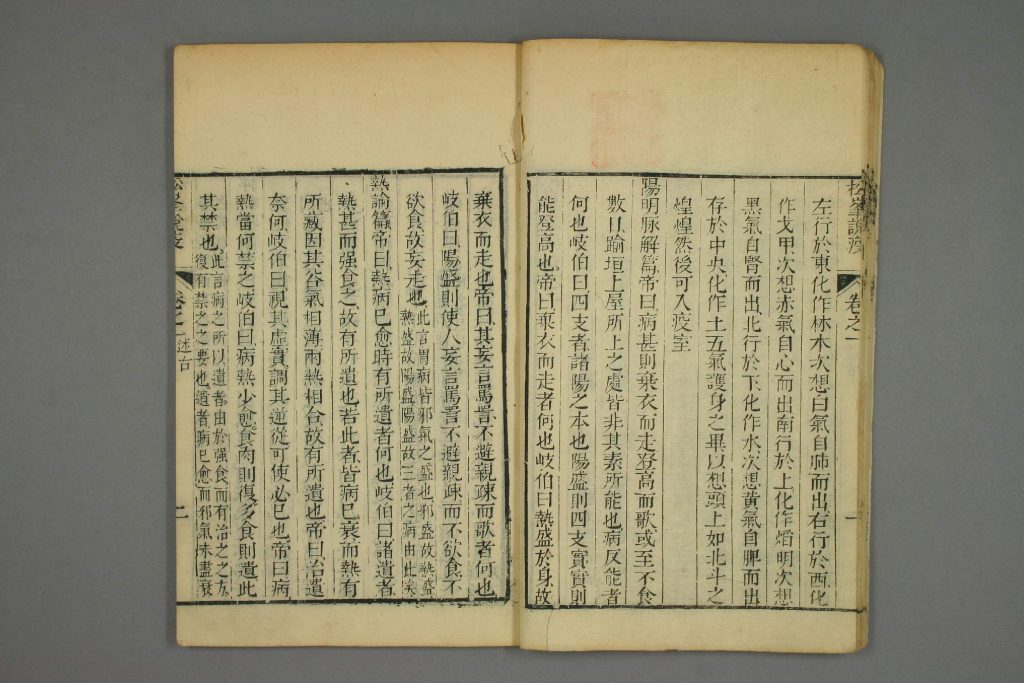 松峯說疫
卷之一
一
左行於東化作林木次想白氣自肺而出右行於西化
作戈甲次想赤氣自心而出南行於上化作焰明次想
黑氣自腎而出北行於下化作水次想黃氣自脾而出
存於中央化作土五氣護身之畢以想頭上如北斗之
煌煌然後可入疫室
陽明脉解篇帝曰病甚則棄衣而走登高而歌或至不食
數日踰垣上屋所上之處皆非其素所能也病反能者
何也岐伯曰四支者諸陽之本也陽盛則四支實實則
能登高也帝曰棄衣而走者何也岐伯曰熱盛於身故
棄衣而走也帝曰其妄言罵詈不避親疎而歌者何也
岐伯曰陽盛則使人妄言罵詈不避親疎而不欲食不
欲食故妄走也此言胃病皆邪氣之盛也邪盛故熱盛
熱盛故陽盛陽盛故三者之病由此矣
熱論篇帝曰熱病已愈時有所遺者何也岐伯曰諸遺者
熱甚而强食之故有所遺也若此者皆病已衰而熱有
所藏因其谷氣相薄兩熱相合故有所遺也帝曰治遺
奈何岐伯曰視其虛實調其逆從可使必已也帝曰病
熱當何禁之岐伯曰病熱少愈食肉則復多食則遺此
其禁也此言病之所以遺者由於强食而有治之之方
復有禁之之要也遺者病已愈而邪氣未盡衰
松峯說疫
卷之一
述古
二